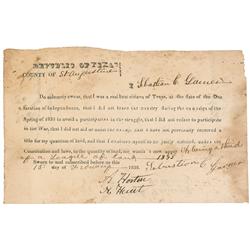 REPUBLIC OF TEXAS
COUNTY OF St Augustine
I Sebastian C Garner
Do solemnly swear, that I was a resident citizen of Texas, at the date of the Dec-
laration of Independence, that I did not leave the country during the campaign of the
Spring of 1836 to avoid a participation in the struggle, that I did not refuse to participate
in the War, that I did not aid or assist the enemy, that I have not previously received a
title for my quantum of land, and that I conceive myself justly entitled, under the
Constitution and laws, to the quantity of land, for which I now apply
of a League of Land
Sworn to and subscribed before this
15 day of February 1838
Sebastian C Garner
A Horton